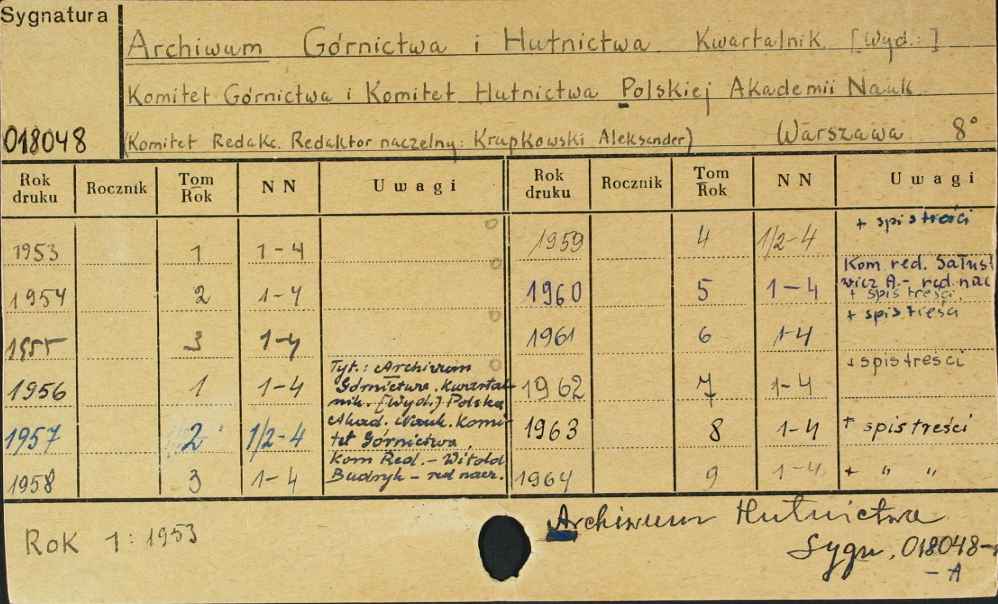 Sygnatura
Archiwum Górnictwa i Hutnictwa. Kwartalnik. [Wyd.:]
Komitet Górnictwa i Komitet Hutnictwa Polskiej Akademii Nauk
018048
(Komitet Redakc. Redaktor naczelny: Krupkowski Aleksander) Warszawa 8°
Rok druku Rocznik Tom Rok N N Uwagi Rok druku Rocznik Tom Rok N N Uwagi
1953 1 1-4 1959 4 1/2-4 + spis treści
1954 2 1-4 1960 5 1-4 Kom. red. Sałustowicz A. - red. nac
+ spis treści
1955 3 1-4 1961 6 1-4 + spis treści
1956 1 1-4 Tyt.: Archiwum 1962 7 1-4 + spis treści
Górnictwa. Kwartal-
nik. [Wyd.:] Polska
1957 2 1/2-4 Akad. Nauk. Komi- 1963 8 1-4 + spis treści
tet Górnictwa.
1958 3 1-4 Kom Red. - Witold 1964 9 1-4 + " "
Budryk - red nacz.
Rok 1: 1953
Archiwum Hutnictwa
Sygn. 018048-
- A